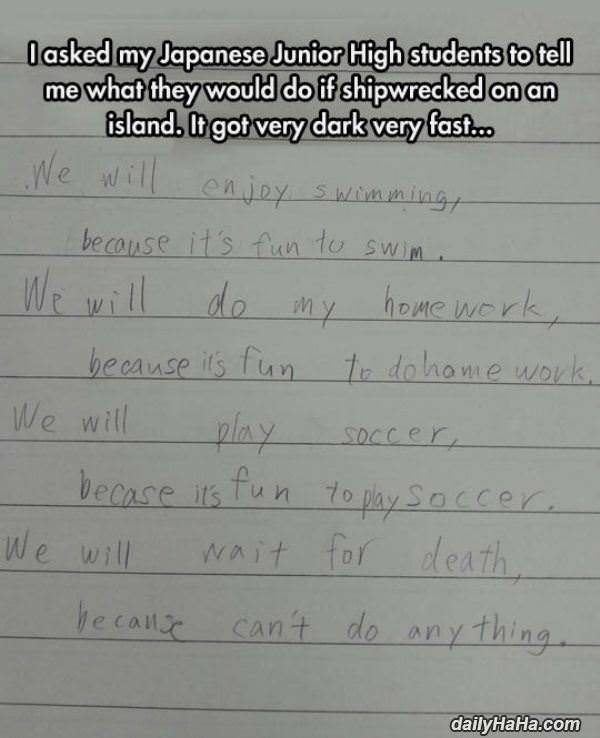 I asked my Japanese Junior High students to tell
me what they would do if shipwrecked on an
island. It got very dark very fast...
We will enjoy swimming,
because it's fun to swim.
We will do my homework,
because it's fun to do home work.
We will play soccer,
becase it's fun to play soccer.
We will wait for death,
because can't do anything.
dailyHaHa.com